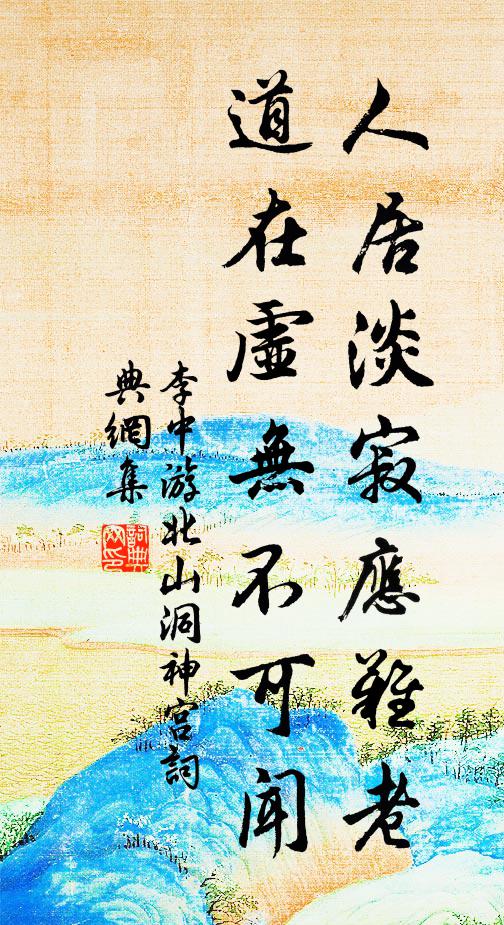 人居淡寂應難老
道在虛無不可聞
李中游北山洞神宮詞
典網集